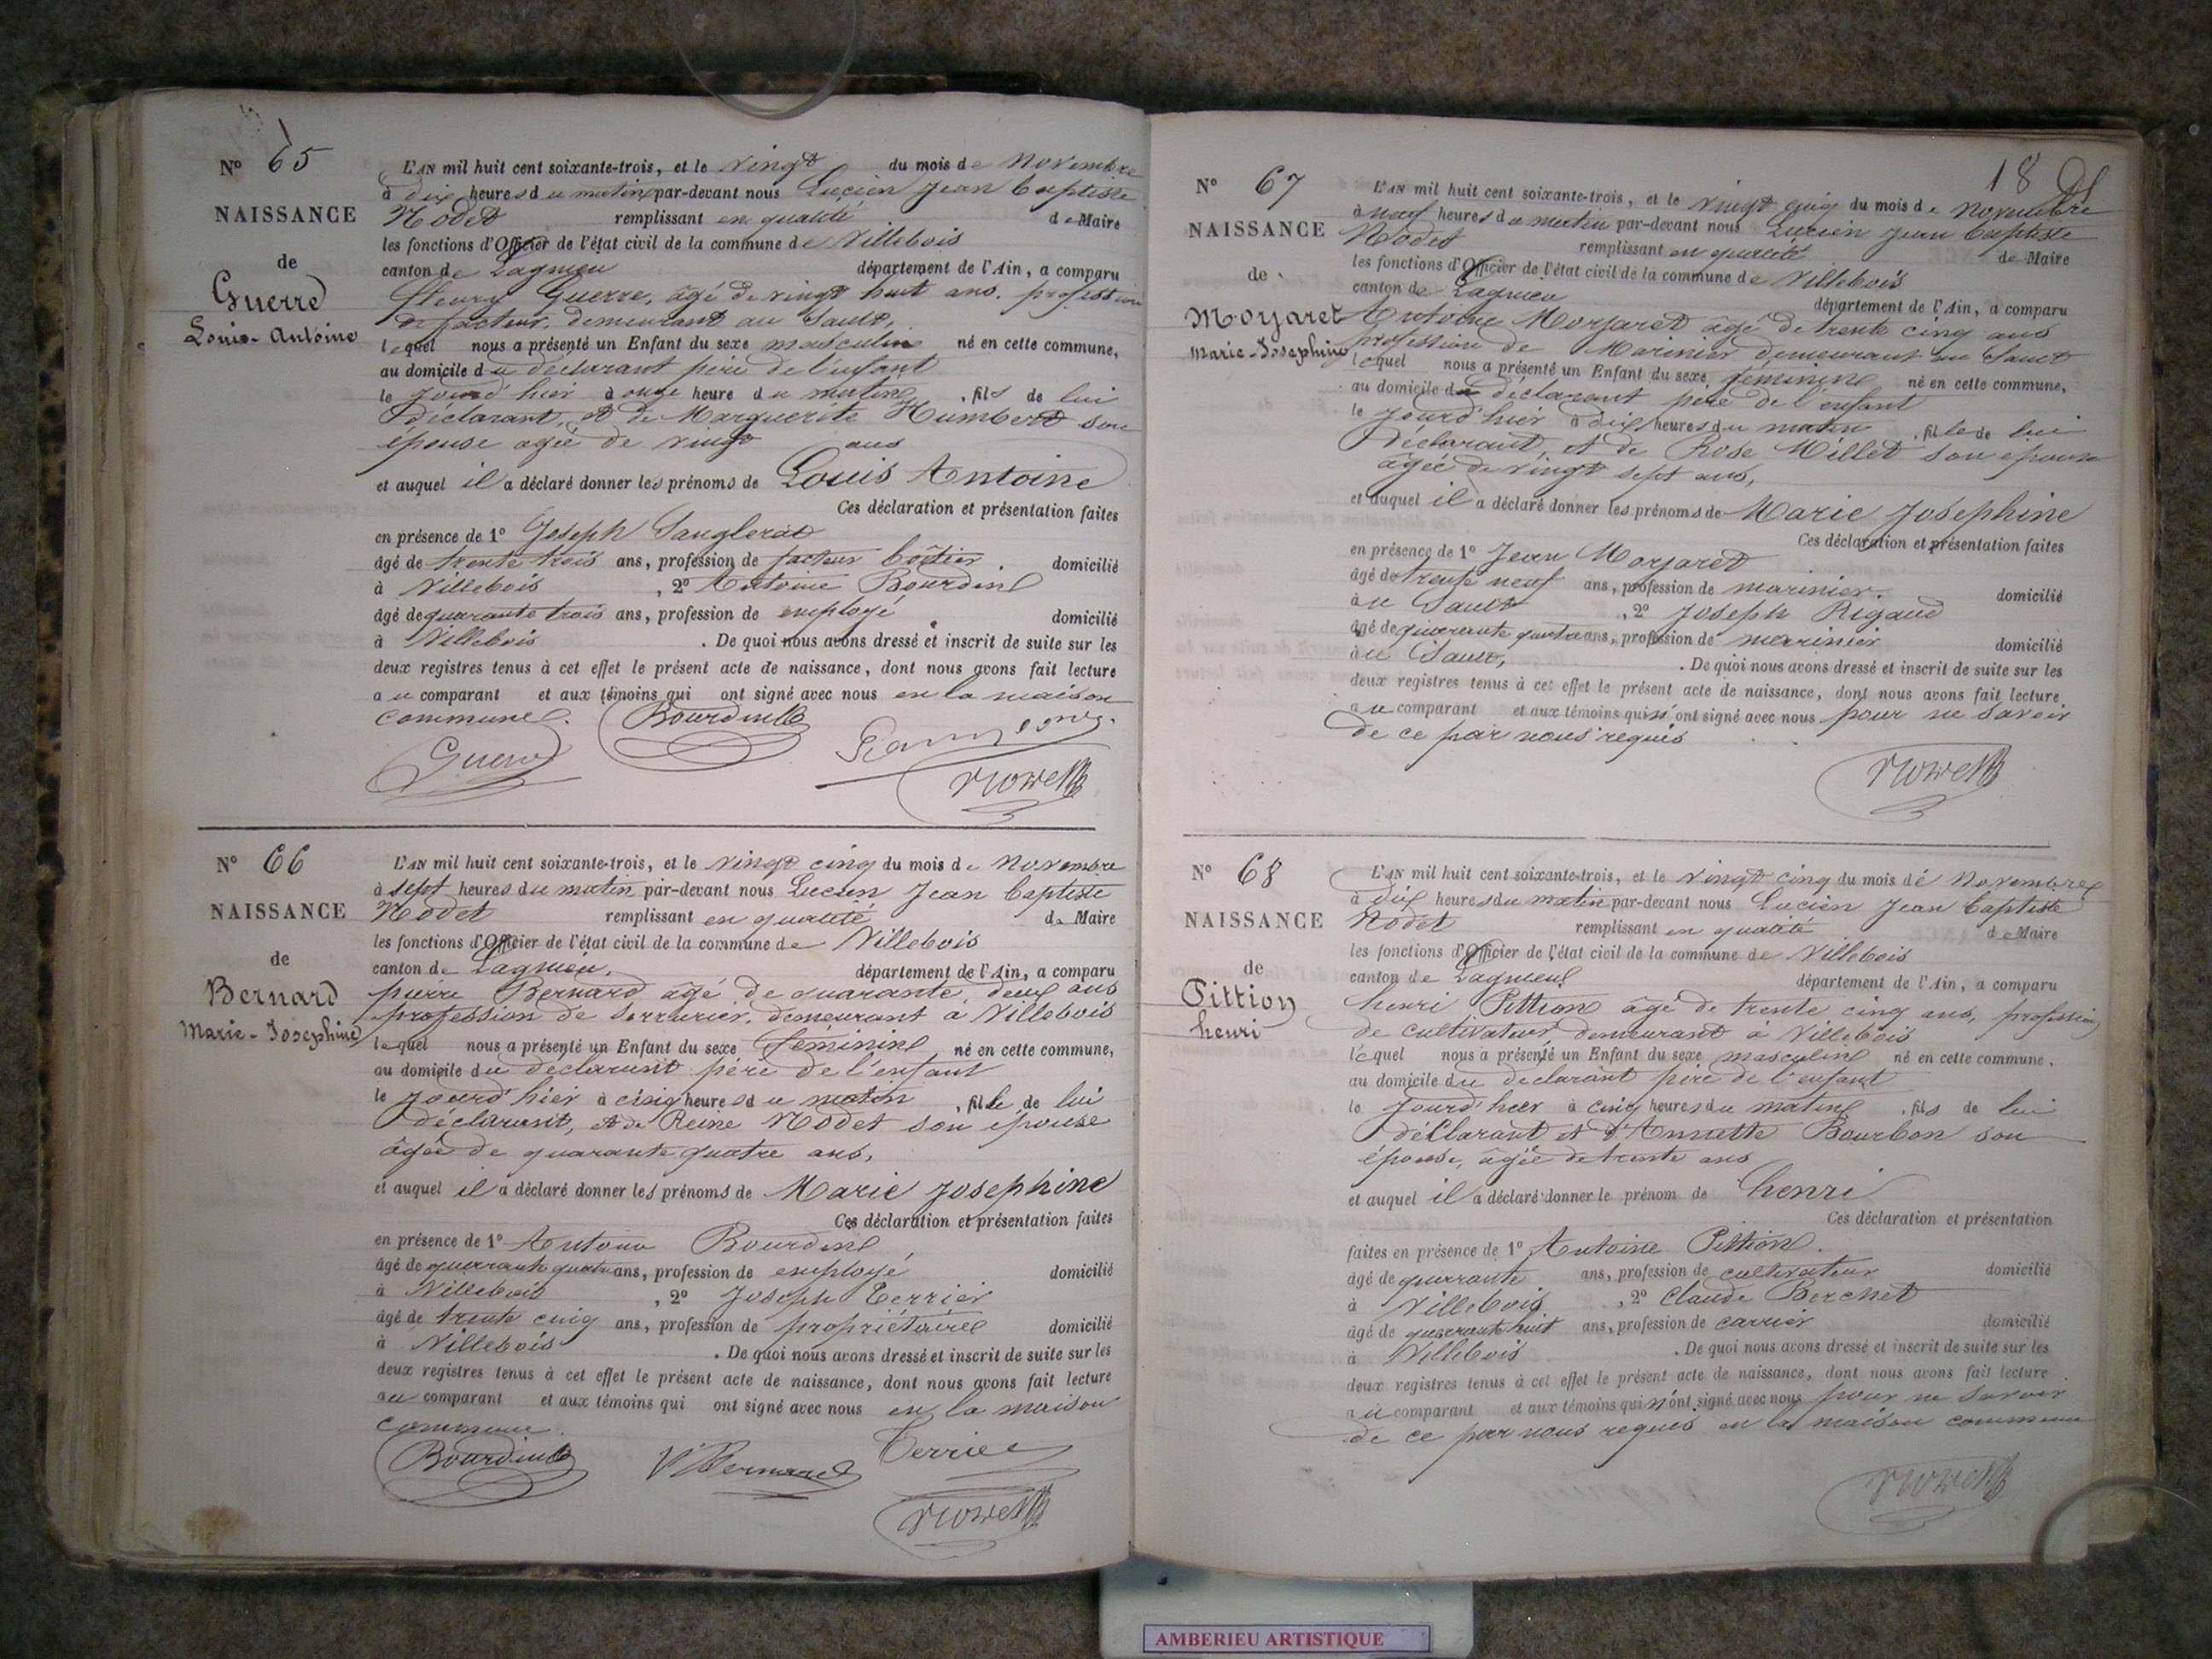 N° 65
NAISSANCE
de
Guerre
Louis-Antoine
L'AN mil huit cent soixante-trois, et le vingt du mois de Novembre
à dix heures du matin par-devant nous Lucien Jean baptiste
Nodet remplissant en qualité de Maire
les fonctions d'Officier de l'état civil de la commune de Villebois
canton de Lagnieu département de l'Ain, a comparu
fleury Guerre, âgé de vingt huit ans, profession
de facteur, demeurant au Sault,
lequel nous a présenté un Enfant du sexe masculin né en cette commune,
au domicile du déclarant père de l'enfant
le jourd'hier à onze heure du matin, fils de lui
déclarant, et de Marguerite Humbert son
épouse agée de vingt ans
et auquel il a déclaré donner les prénoms de Louis Antoine
Ces déclaration et présentation faites
en présence de 1° Joseph
âgé de trente trois ans, profession de facteur boîtier. domicilié
à Villebois, 2° Antoine Bourdin
âgé de quarante trois ans, profession de employé domicilié
à Villebois. De quoi nous avons dressé et inscrit de suite sur les
deux registres tenus à cet effet le présent acte de naissance, dont nous avons fait lecture
au comparant et aux témoins qui ont signé avec nous en la maison
commune.
Bourdin
Guerre
N° 66
NAISSANCE
de
Bernard
Marie-Josephine
L'AN mil huit cent soixante-trois, et le vingt cinq du mois de Novembre
à sept heures du matin par-devant nous Lucien Jean baptiste
Nodet remplissant en qualité de Maire
les fonctions d'Officier de l'état civil de la commune de Villebois
canton de Lagnieu, département de l'Ain, a comparu
pierre Bernard âgé de quarante deux ans
profession de serrurier, demeurant à Villebois
lequel nous a présenté un Enfant du sexe féminin né en cette commune,
au domicile du déclarant père de l'enfant
le jourd'hier à cinq heures du matin, fille de lui
déclarant, et de Reine Nodet son épouse
âgée de quarante quatre ans,
et auquel il a déclaré donner les prénoms de Marie Josephine
Ces déclaration et présentation faites
en présence de 1° Antoine Bourdin
âgé de quarante quatre ans, profession de employé domicilié
à Villebois, 2° Joseph Terrier
âgé de trente cinq ans, profession de propriétaire domicilié
à Villebois. De quoi nous avons dressé et inscrit de suite sur les
deux registres tenus à cet effet le présent acte de naissance, dont nous avons fait lecture
au comparant et aux témoins qui ont signé avec nous en la maison
commune.
Bourdin Bernard Terrier
18
N° 67
NAISSANCE
de
Morjaret
Marie-Josephine
L'AN mil huit cent soixante-trois, et le vingt cinq du mois de novembre
à neuf heures du matin par-devant nous Lucien Jean baptiste
Nodet remplissant en qualité de Maire
les fonctions d'Officier de l'état civil de la commune de Villebois
canton de Lagnieu département de l'Ain, a comparu
Antoine Morjaret âgé de trente cinq ans
profession de Marinier demeurant au Sault
lequel nous a présenté un Enfant du sexe féminin né en cette commune,
au domicile du déclarant père de l'enfant
le jourd'hier à dix heures du matin, fille de lui
déclarant, et de Rose Millet son épouse
âgée de vingt sept ans,
et auquel il a déclaré donner les prénoms de Marie Josephine
Ces déclaration et présentation faites
en présence de 1° Jean Morjaret
âgé de trente neuf ans, profession de marinier. domicilié
au Sault, 2° Joseph Rigaud
âgé de quarante quatre ans, profession de marinier domicilié
au Sault, . De quoi nous avons dressé et inscrit de suite sur les
deux registres tenus à cet effet le présent acte de naissance, dont nous avons fait lecture
au comparant et aux témoins qui n'ont signé avec nous pour ne savoir
de ce par nous requis
N° 68
NAISSANCE
de
Pittion
henri
L'AN mil huit cent soixante-trois, et le vingt cinq du mois de Novembre
à dix heures du matin par-devant nous Lucien Jean baptiste
Nodet remplissant en qualité de Maire
les fonctions d'Officier de l'état civil de la commune de Villebois
canton de Lagnieu département de l'Ain, a comparu
henri Pittion âgé de trente cinq ans, profession
de cultivateur demeurant à Villebois
lequel nous a présenté un Enfant du sexe masculin né en cette commune.
au domicile du déclarant père de l'enfant
le jourd'hier à cinq heures du matin, fils de lui
déclarant et d'Annette Bourbon son
épouse, âgée de trente ans
et auquel il a déclaré donner le prénom de henri
Ces déclaration et présentation
faites en présence de 1° Antoine Pittion.
âgé de quarante ans, profession de cultivateur domicilié
à Villebois, 2° Claude Berchet
âgé de quarante huit ans, profession de carrier domicilié
à Villebois. De quoi nous avons dressé et inscrit de suite sur les
deux registres tenus à cet effet le présent acte de naissance, dont nous avons fait lecture
au comparant et aux témoins qui n'ont signé avec nous pour ne savoir
de ce par nous requis en la maison commune
AMBERIEU ARTISTIQUE